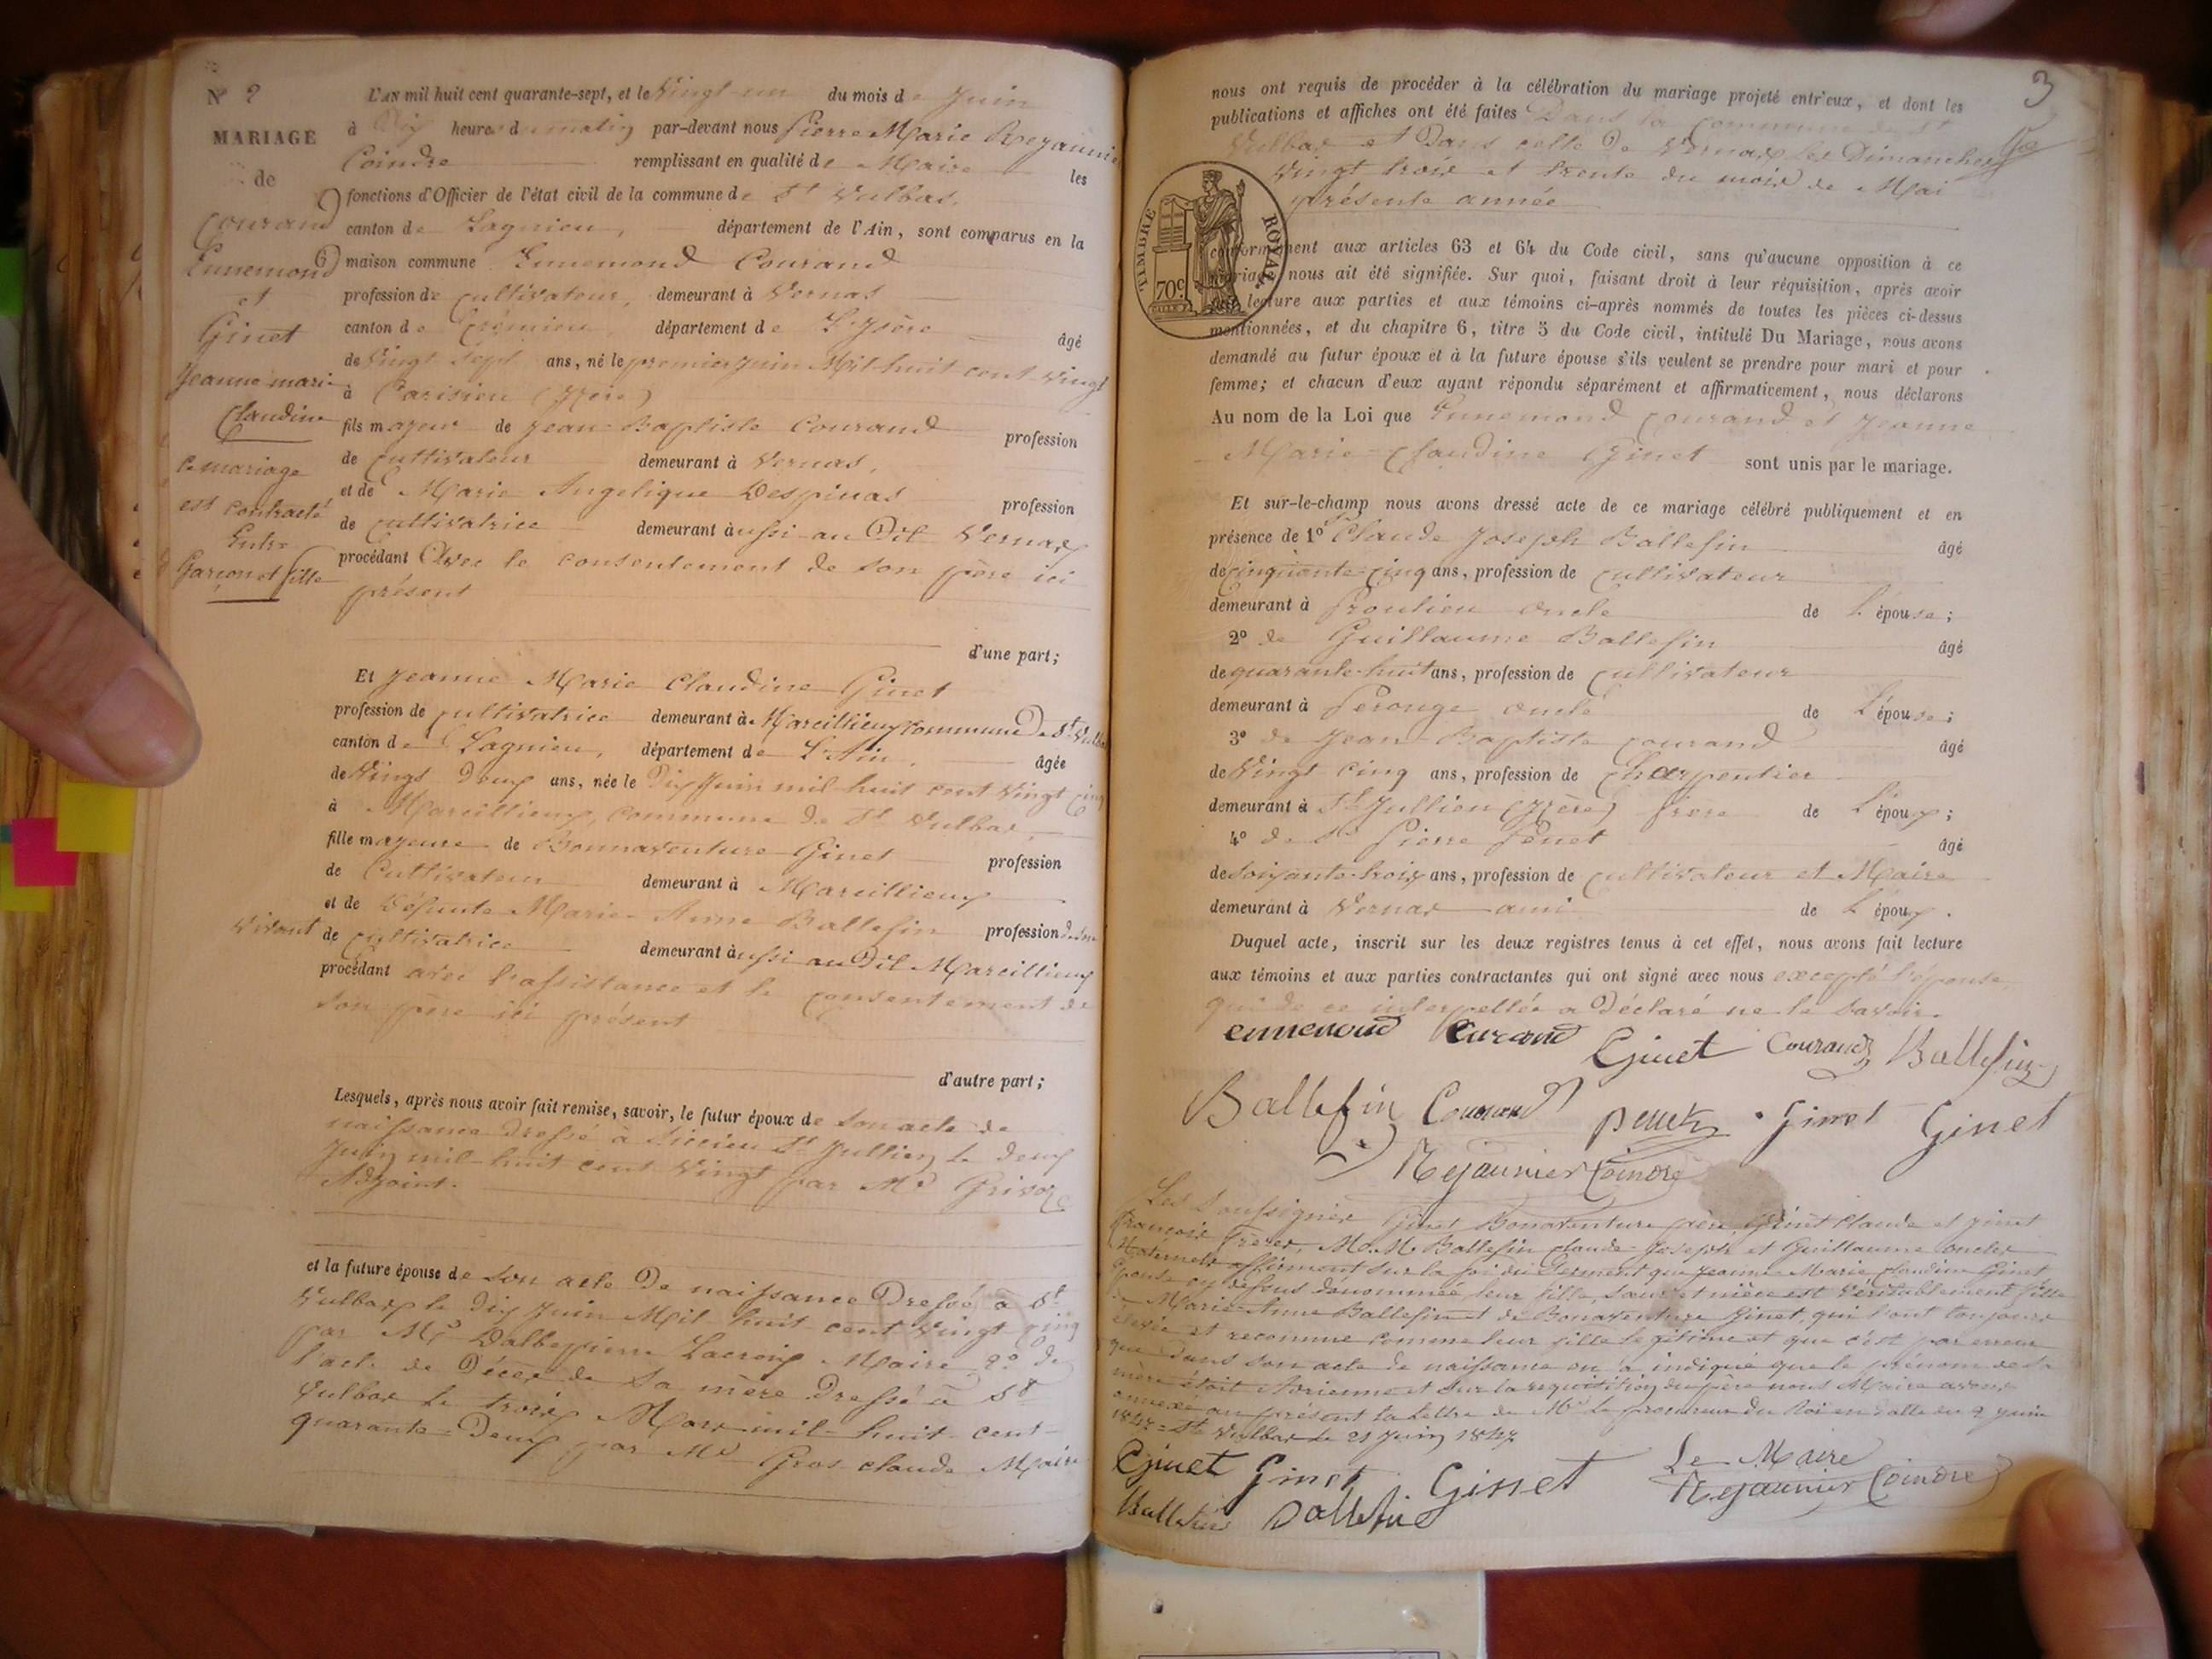 N° 2
MARIAGE
de
Courand
Ennemond
et
Ginet
Jeanne marie
Claudine
le mariage
est contracté
Entre
Garçon et fille
L'AN mil huit cent quarante-sept, et le Vingt-un du mois de Juin
à Dix heures du matin par-devant nous Pierre Marie Rejaunier
Coindre remplissant en qualité de Maire les
fonctions d'Officier de l'état civil de la commune de St Vulbas,
canton de Lagnieu, département de l'Ain, sont comparus en la
maison commune Ennemond Courand
profession de cultivateur, demeurant à Vernas
canton de Crémieu département de L'Isère âgé
de Vingt Sept ans, né le premier Juin Mil huit cent vingt
à Parisieu (Isère)
fils majeur de Jean-Baptiste Courand profession
de cultivateur demeurant à Vernas,
et de Marie Angelique Despinas profession
de cultivatrice demeurant aussi au Dit Vernas
procédant Avec le consentement de son père ici
présent
d'une part;
Et Jeanne Marie Claudine Ginet
profession de cultivatrice demeurant à Marcillieux commune De St Vulbas
canton de Lagnieu, département de L'Ain, âgée
de Vingt Deux ans, née le Dix Juin mil huit cent vingt cinq
à Marcillieux, commune de St Vulbas,
fille majeure de Bonnaventure Ginet profession
de Cultivateur demeurant à Marcillieux
et de Défunte Marie-Anne Ballefin profession de son
vivant de cultivatrice demeurant aussi au Dit Marcillieux
procédant avec l'assistance et le consentement de
son père ici présent
d'autre part;
Lesquels, après nous avoir fait remise, savoir, le futur époux de son acte de
naissance Dressé à Siccieu St Jullien le deux
Juin mil huit cent vingt par Mr Grivoz
Adjoint.
et la future épouse de son acte De naissance Dressé à St
Vulbas le dix Juin Mil huit cent vingt cinq
par Mr Dalbepierre Lacroix Maire 2° de
l'acte de Décès de sa mère Dressé à St
Vulbas le trois Mars mil huit cent
quarante-Deux par Mr Gros claude Maire
3
nous ont requis de procéder à la célébration du mariage projeté entr'eux, et dont les
publications et affiches ont été faites Dans la commune de St
Vulbas et Dans celle De Vernas les Dimanches
Vingt trois et trente du mois de Mai
présente année
TIMBRE ROYAL
70c
conformément aux articles 63 et 64 du Code civil, sans qu'aucune opposition à ce
mariage nous ait été signifiée. Sur quoi, faisant droit à leur réquisition, après avoir
lecture aux parties et aux témoins ci-après nommés de toutes les pièces ci-dessus
mentionnées, et du chapitre 6, titre 5 du Code civil, intitulé Du Mariage, nous avons
demandé au futur époux et à la future épouse s'ils veulent se prendre pour mari et pour
femme; et chacun d'eux ayant répondu séparément et affirmativement, nous déclarons
Au nom de la Loi que Ennemond Courand et Jeanne
Marie-Claudine Ginet sont unis par le mariage.
Et sur-le-champ nous avons dressé acte de ce mariage célébré publiquement et en
présence de 1° Claude Joseph Ballefin âgé
de cinquante cinq ans, profession de cultivateur
demeurant à Proulieu oncle de L'épouse;
2° de Guillaume Ballefin âgé
de quarante-huit ans, profession de cultivateur
demeurant à Perouge oncle de L'épouse;
3° de Jean-Baptiste Courand âgé
de Vingt cinq ans, profession de Charpentier
demeurant à St Jullien (Isère) frere de L'époux;
4° de Sr Pierre Penet âgé
de soixante-trois ans, profession de cultivateur et Maire
demeurant à Vernas ami de L'époux.
Duquel acte, inscrit sur les deux registres tenus à cet effet, nous avons fait lecture
aux témoins et aux parties contractantes qui ont signé avec nous excepté l'épouse
qui de ce interpellée a Déclaré ne le savoir.
ennemond Curand Ginet Courand Ballefin
Ballefin Courand Penet Ginet Ginet
Rejaunier Coindre
Les Soussignés Ginet Bonaventure père Ginet Claude et ginet
françois freres, M.M. Ballefin claude-Joseph et Guillaume oncles
Maternels affirment sur la foi du Serment que Jeanne Marie claudine Ginet
épouse cy dessus dénommée leur fille, Sœur et nièce est Véritablement fille
de Marie-Anne Ballefin et de Bonaventure Ginet, qui l'ont toujours
élevée et reconnue comme leur fille légitime et que c'est par erreur
que dans son acte de naissance on a indiqué que le prénom de sa
mère était Adrienne et Sur la requisition du père nous Maire avons
annexé au présent la lettre de Mr le procureur du Roi en Datte du 2 juin
1847 = St Vulbas le 21 Juin 1847
Ginet Ginet Ginet Le Maire
Ballefin Ballefin Rejaunier Coindre